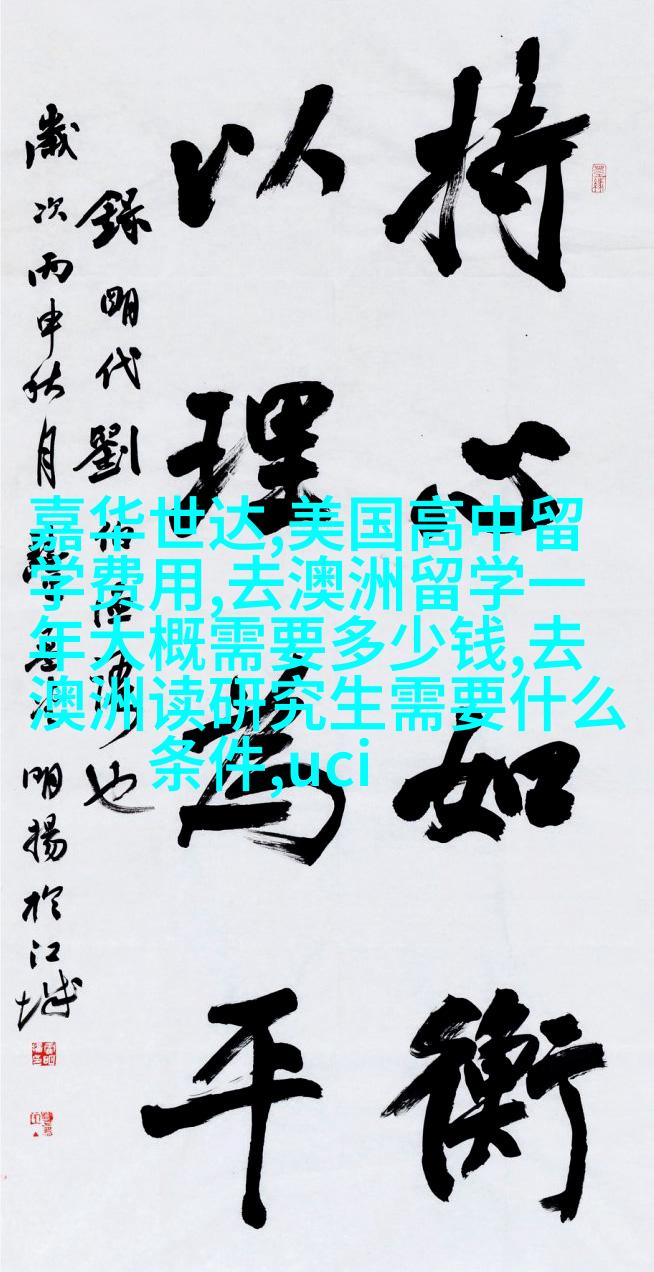 持心如衡
以理为平
錄明代劉伯溫
也
歲次丙申秋月
明揚於江城
嘉华世达,美国高中留
学费用,去澳洲留学一
年大概需要多少钱,去
澳洲读研究生需要什么
条件,uci